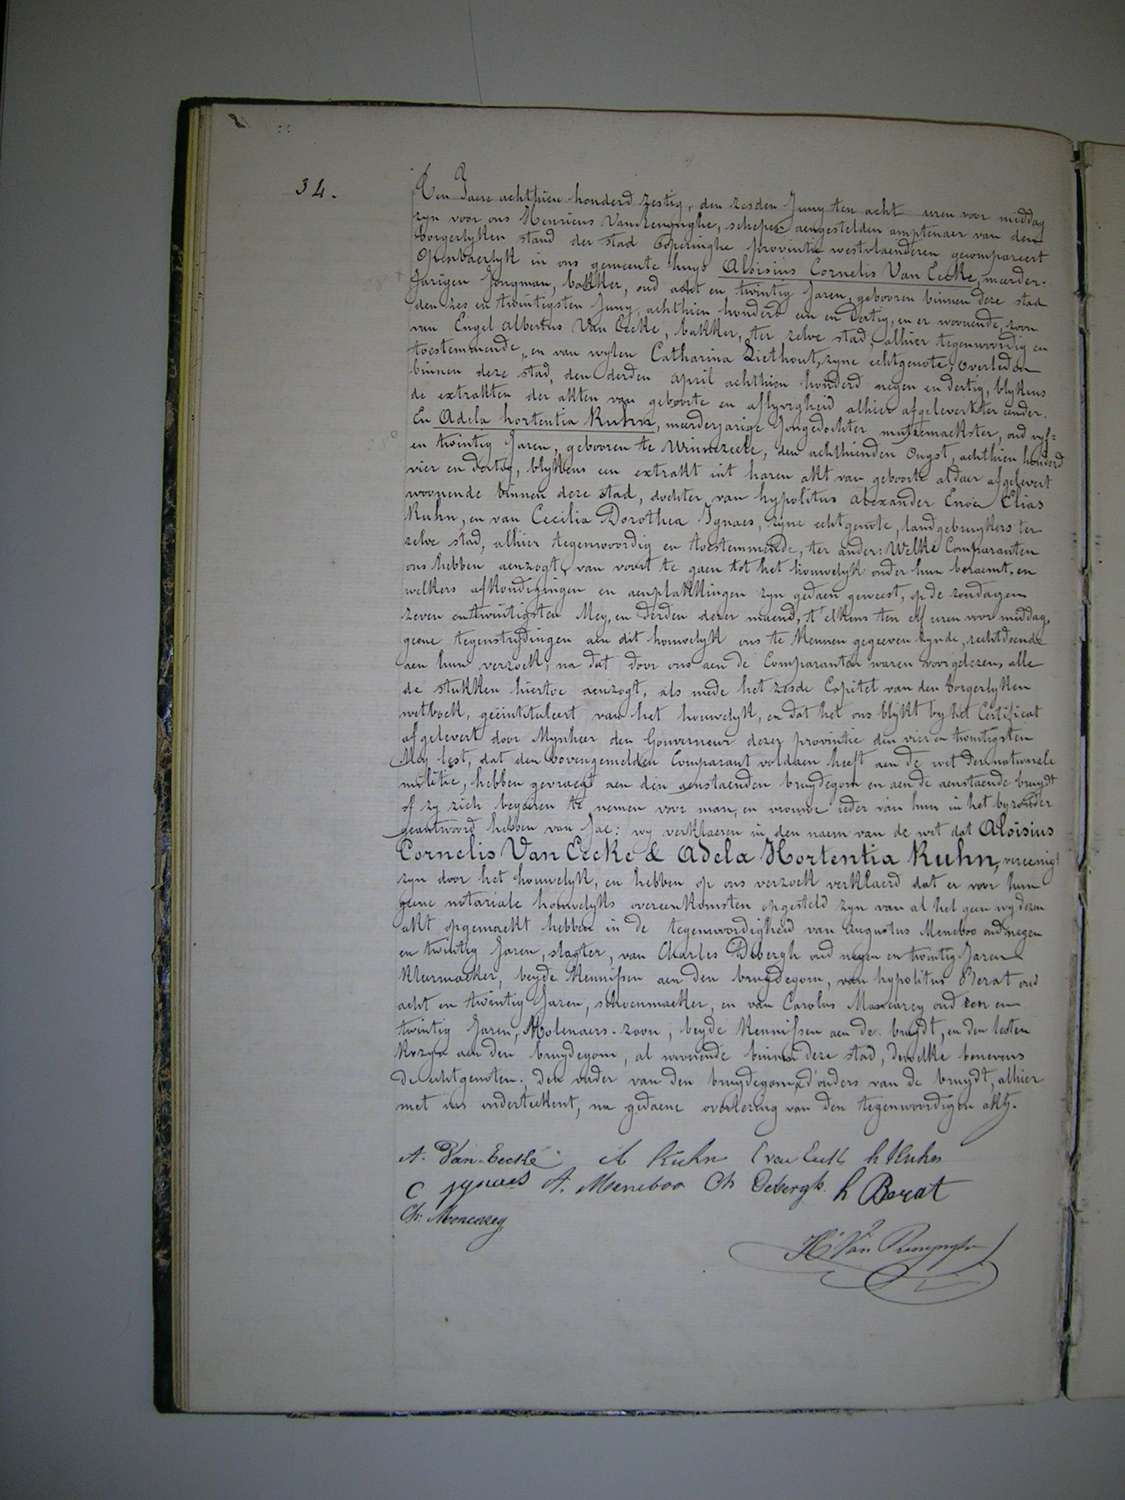 34.
Den Jaere achthien honderd zestig, den zesden Juny ten acht uren voor middag
zyn voor ons Henricus Van Renynghe, schepen aengestelden amptenaer van den
borgerlyken stand der stad Poperinghe provintie westvlaenderen gecompareert
Openbaerlyk in ons gemeente huys Aloisius Cornelis Van Eecke, meerder-
Jarigen Jongman, bakker, oud acht en twintig Jaren, gebooren binnen deze stad
den zes en twintigsten Juny, achthien honderd een en dertig, en er woonende, zoon
van Engel Albertus Van Eecke, bakker, ter zelve stad, alhier tegenwoordig en
toestemmende, en van wylen Catharina Liethout, zyne echtgenote, overleden
binnen deze stad, den derden april achthien honderd negen en dertig, blykens
de extrakten der akten van geboorte en aflyvigheid alhier afgelevert ter eender.
En Adela hortentia Kuhn, meerderjarige Jongedochter mutsemaekster, oud vyf-
en twintig Jaren, gebooren te Winnezeele, den achthienden Ougst, achthien honderd
vier en dertig, blykens een extrakt uit haren akt van geboorte aldaer afgelevert
woonende binnen deze stad, dochter van hypolitus alexander Enoe Elias
Kuhn, en van Cecilia Dorothea Ignaes, zyne echtgenote, landgebruykers ter
zelve stad, alhier tegenwoordig en toestemmende, ter ander: Welke Comparanten
ons hebben aenzogt, van voort te gaen tot het houwelyk onder hun beraemt, en
welkers afkondigingen en aenplakkingen zyn gedaen geweest, op de zondagen
zeven en twintigsten Mey, en derden dezer maend, t'elkens ten elf uren voor middag,
geene tegenstrydingen aen dit houwelyk ons te kennen gegeven zynde, rechtdoende
aen hun verzoek, na dat door ons aen de Comparanten waren voorgelezen, alle
de stukken hiertoe aenzogt, als mede het zesde Capitel van den borgerlyken
wetboek, geïntituleert van het houwelyk, en dat het ons blykt by het Certificat
afgelevert door Mynheer den Gouverneur dezer provintie den vier en twintigsten
Mey lest, dat den bovengemelden Comparant voldaen heeft aen de wet der nationaele
militie, hebben gevraegt aen den aenstaenden bruydegom en aen de aenstaende bruydt
of zy zich begeeren te nemen voor man, en vrouwe ieder van hun in het byzonder
geantwoord hebben van Jae: wy verklaeren in den naem van de wet dat Aloisius
Cornelis Van Eecke & Adela Hortentia Kuhn, vereenigt
zyn door het houwelyk, en hebben op ons verzoek verklaerd dat er voor hun
geene notariale houwelyks overeenkomsten opgesteld zyn van al het geen wy dezen
akt opgemaekt hebben in de tegenwoordigheid van Augustus Meneboo oud negen
en twintig Jaren, slagter, van Charles Debergh oud negen en twintig Jaren
kleermaeker, beyde kennissen aen den bruydegom, van hypolitus Berat oud
acht en twintig Jaren, schoenmaeker, en van Carolus oud een en
twintig Jaren, Molenaers-zoon, beyde kennissen aen de bruydt, en den lesten
kozyn aen den bruydegom, al woonende binnen deze stad, dewelke benevens
de echtgenoten. Den vader van den bruydegom, d'ouders van de bruydt, alhier
met ons onderteekent, na gedaene overlezing van den tegenwoordigen akt.
A. Van-Eecke A Kuhn E van Eecke h Kuhn
C ignaes A. Meneboo Ch Debergh h Berat
Ch.
H Van Renynghe